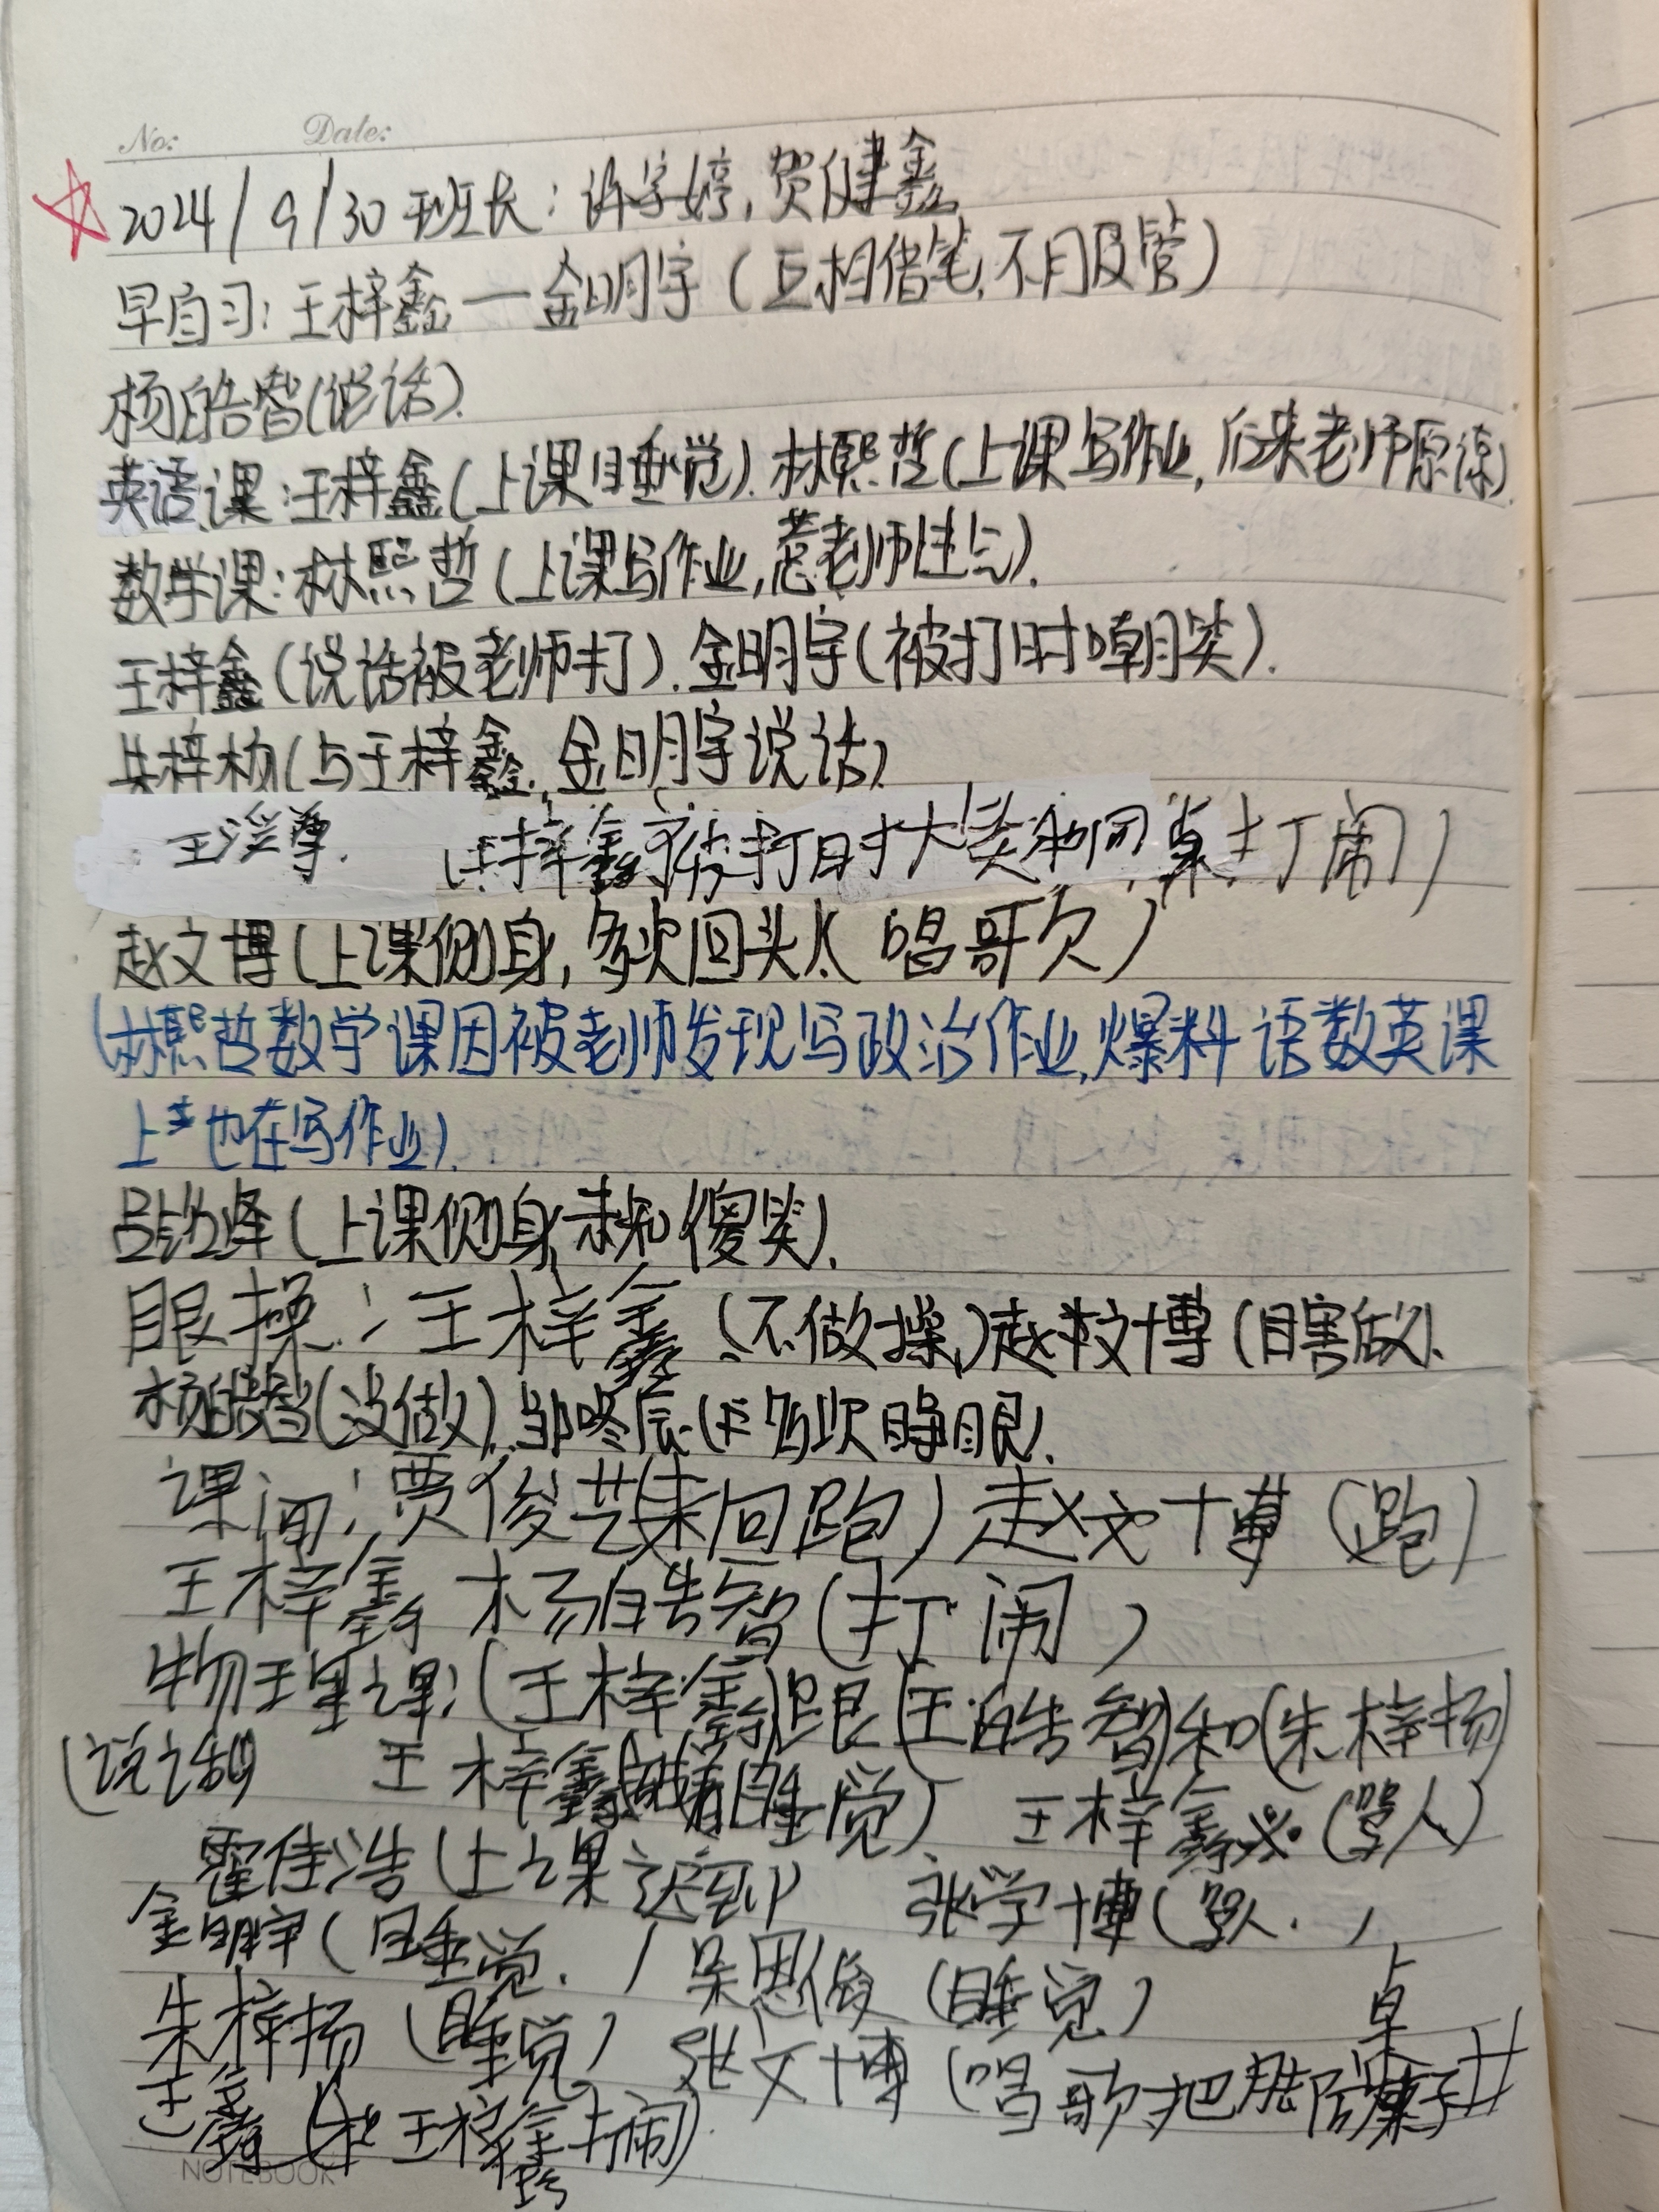 No: Date:
2024/9/30 班长：许字婷，贺健鑫
早自习：王梓鑫一金明宇（互相借笔，不服管）
杨皓智（说话）.
英语课：王梓鑫（上课睡觉）. 林熙哲（上课写作业，后来老师原谅）.
数学课：林熙哲（上课写作业，惹老师生气）.
王梓鑫（说话被老师打）. 金明宇（被打时嘲笑）.
朱梓杨（与王梓鑫，金明宇说话）
王 尊. （王梓鑫被打时大笑和同桌打闹）
赵文博（上课侧身，多次回头，唱哥欠）
（林熙哲数学课因被老师发现写政治作业，爆料语数英课
上也在写作业）.
吕 烽（上课侧身 和傻笑）.
眼操：王梓鑫（不做操）赵文博（瞎做）.
杨皓智（没做）. 邹咚辰（ 睁眼）.
课间：贾俊艺（来回跑）赵文博（跑）
王梓鑫 杨皓智（打闹）
物理课：（王梓鑫）跟（王皓智）和（朱梓扬）
（说话） 王梓鑫（ 睡觉） 王梓鑫（骂人）
霍佳浩（上课迟到） 张学博（骂人.）
金明宇（睡觉.） 吴恩俊（睡觉）
朱梓扬（睡觉） 张文博（唱歌把腿 桌
王鑫（和王梓鑫打闹）
NOTEBOOK